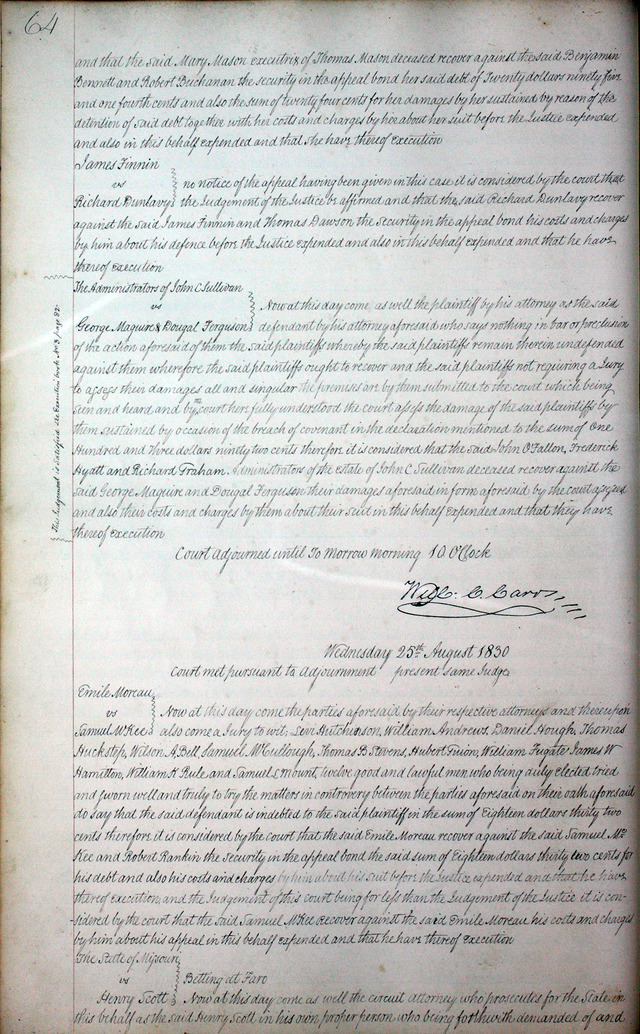 64
and that the said Mary Mason executrix of Thomas Mason deceased recover against the said Benjamin
Bennett and Robert Buchanan the security in the appeal bond her said debt of Twenty dollars ninety five
and one fourth cents and also the sum of twenty four cents for her damages by her sustained by reason of the
detention of said debt together with her costs and charges by her about her suit before the Justice expended
and also in this behalf expended and that she have thereof execution
James Finnin
vs no notice of the appeal having been given in this case it is considered by the court that
Richard Dunlavy the Judgement of the Justice be affirmed and that the said Richard Dunlavy recover
against the said James Finnin and Thomas Dawson the Security in the appeal bond his costs and charges
by him about his defence before the Justice expended and also in this behalf expended and that he have
thereof execution
The Administrators of John C Sullivan
vs Now at this day come as well the plaintiff by his attorney as the said
George Maguire & Dougal Ferguson defendant by his attorney aforesaid who says nothing in bar or preclusion
of the action aforesaid of them the said plaintiffs whereby the said plaintiffs remain therein undefended
against them wherefore the said plaintiffs ought to recover and the said plaintiffs not requiring a Jury
to assess their damages all and singular the premises are by them submitted to the court which being
seen and heard and by the court here fully understood the court assess the damage of the said plaintiffs by
them sustained by occasion of the breach of covenant in the declaration mentioned to the sum of One
Hundred and Three dollars ninety two cents therefore it is considered that the said John O'Fallon, Frederick
Hyatt and Richard Graham Administrators of the estate of John C Sullivan deceased recover against the
said George Maguire and Dougal Ferguson their damages aforesaid in form aforesaid by the court assessed
and also their costs and charges by them about their suit in this behalf expended and that they have
thereof execution
This Judgement is Satisfied see Execution book No 3 page 22
Court adjourned until To Morrow morning 10 O'Clock
Wm. C. Carr
Wednesday 25th August 1830
Court met pursuant to Adjournment present same Judge
Emile Moreau
vs Now at this day come the parties aforesaid by their respective attorneys and thereupon
Samuel McKee also come a Jury to wit, Levi Hutchinson, William Andrews, Daniel Hough, Thomas
Huckstep, Wilson A Bell Samuel McCullough, Thomas B Stevens, Hubert Guion, William Fugate James W
Hamilton, William K Rule and Samuel Mount, twelve good and lawful men who being duly elected tried
and sworn well and truly to try the matters in controversy between the parties aforesaid on their oath aforesaid
do say that the said defendant is indebted to the said plaintiff in the sum of Eighteen dollars thirty two
cents therefore it is considered by the court that the said Emile Moreau recover against the said Samuel Mc
Kee and Robert Rankin the security in the appeal bond the said sum of Eighteen dollars thirty two cents for
his debt and also his costs and charges by him about his suit before the Justice expended and that he have
thereof execution and the Judgement of this court being for less than the Judgement of the Justice it is con-
-sidered by the court that the said Samuel McKee recover against the said Emile Moreau his costs and charges
by him about his appeal in this behalf expended and that he have thereof execution
The State of Missouri
vs Betting at Faro
Henry Scott Now at this day come as well the circuit attorney who prosecutes for the State in
this behalf as the said Henry Scott in his own proper person who being forthwith demanded of and